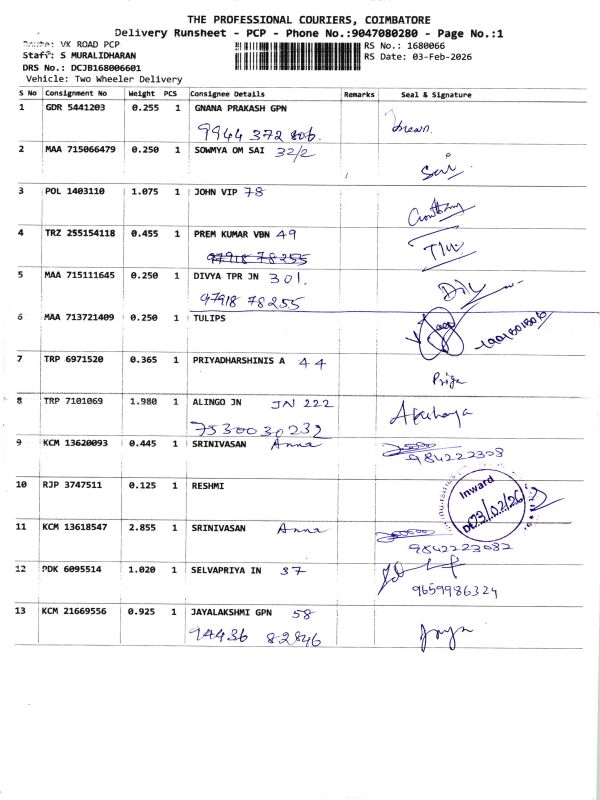 THE PROFESSIONAL COURIERS, COIMBATORE
Delivery Runsheet - PCP - Phone No.:9047080280 - Page No.:1
Route: VK ROAD PCP RS No.: 1680066
Staff: S MURALIDHARAN RS Date: 03-Feb-2026
DRS No.: DCJB168006601
Vehicle: Two Wheeler Delivery
S No Consignment No Weight PCS Consignee Details Remarks Seal & Signature
1 GDR 5441203 0.255 1 GNANA PRAKASH GPN
9944 372 806
2 MAA 715066479 0.250 1 SOWMYA OM SAI 32/2 Sai
3 POL 1403110 1.075 1 JOHN VIP 78
4 TRZ 255154118 0.455 1 PREM KUMAR VBN 49
97918 78255
5 MAA 715111645 0.250 1 DIVYA TPR JN 301.
97918 78255
6 MAA 713721409 0.250 1 TULIPS
7 TRP 6971520 0.365 1 PRIYADHARSHINIS A 44
Priya
8 TRP 7101069 1.980 1 ALINGO JN JN 222
7530030232
9 KCM 13620093 0.445 1 SRINIVASAN Anna
984222308
10 RJP 3747511 0.125 1 RESHMI
Inward
03/02/26
11 KCM 13618547 2.855 1 SRINIVASAN Anna
9842223082
12 PDK 6095514 1.020 1 SELVAPRIYA IN 37
9659986324
13 KCM 21669556 0.925 1 JAYALAKSHMI GPN 58
94436 82846 Jaya